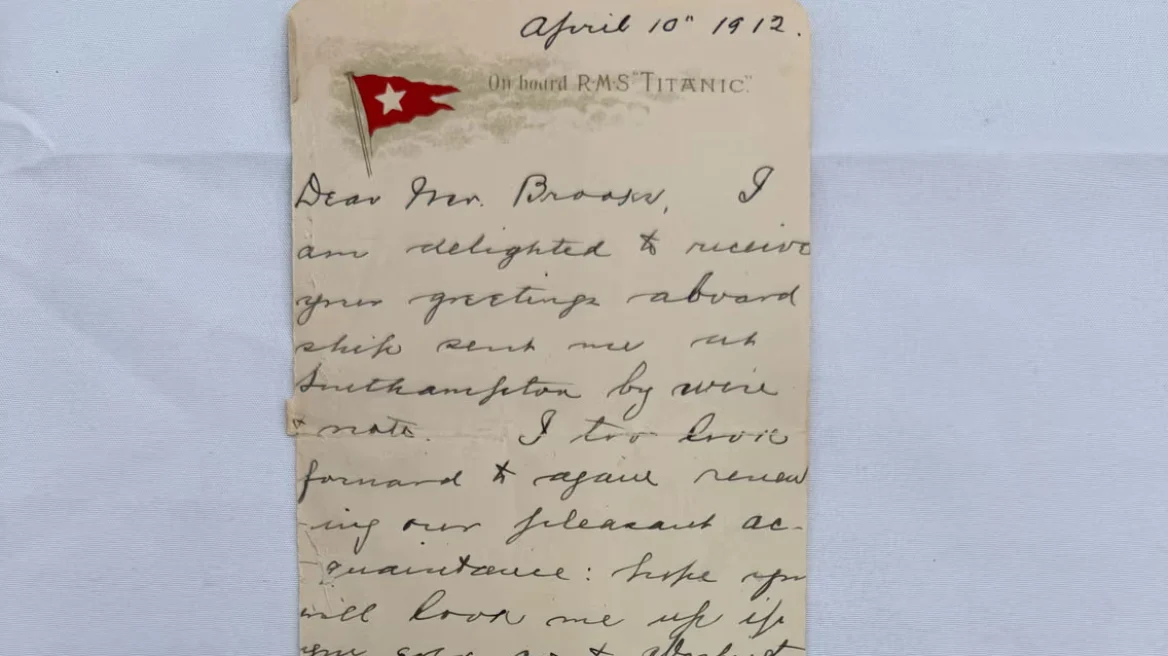 April 10" 1912.
On board R·M·S "TITANIC".
Dear Mr. Brooks, I
am delighted to receive
your greetings aboard
ship sent me at
Southampton by wire
& note. I too look
forward to again renew
-ing our pleasant ac-
quaintance: hope you
will look me up if
you